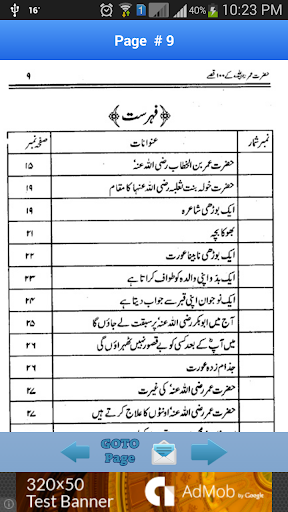 16°
10:23 PM
Page # 9
حضرت عمر رضی اللہ عنہ کے ۱۰۰ قصے
۹
فہرست
نمبر شمار عنوانات صفحہ نمبر
حضرت عمر بن الخطاب رضی اللہ عنہٗ ۱۵
حضرت خولہ بنت ثعلبہ رضی اللہ عنہا کا مقام ۱۹
ایک بوڑھی شاعرہ ۱۹
بھوکا بچہ ۲۱
ایک بوڑھی نابینا عورت ۲۲
ایک بدو اپنی والدہ کو طواف کراتا ہے ۲۳
ایک نوجوان اپنی قبر سے جواب دیتا ہے ۲۴
آج میں ابوبکر رضی اللہ عنہٗ پر سبقت لے جاؤں گا ۲۵
میں آپؓ کے بعد کسی کو بے قصور نہیں ٹھہراؤں گی ۲۶
جذام زدہ عورت ۲۶
حضرت عمر رضی اللہ عنہٗ کی غیرت ۲۷
حضرت عمر رضی اللہ عنہٗ اونٹوں کا علاج کرتے ہیں ۲۷
GOTO
Page
320×50
Test Banner
AdMob by Google